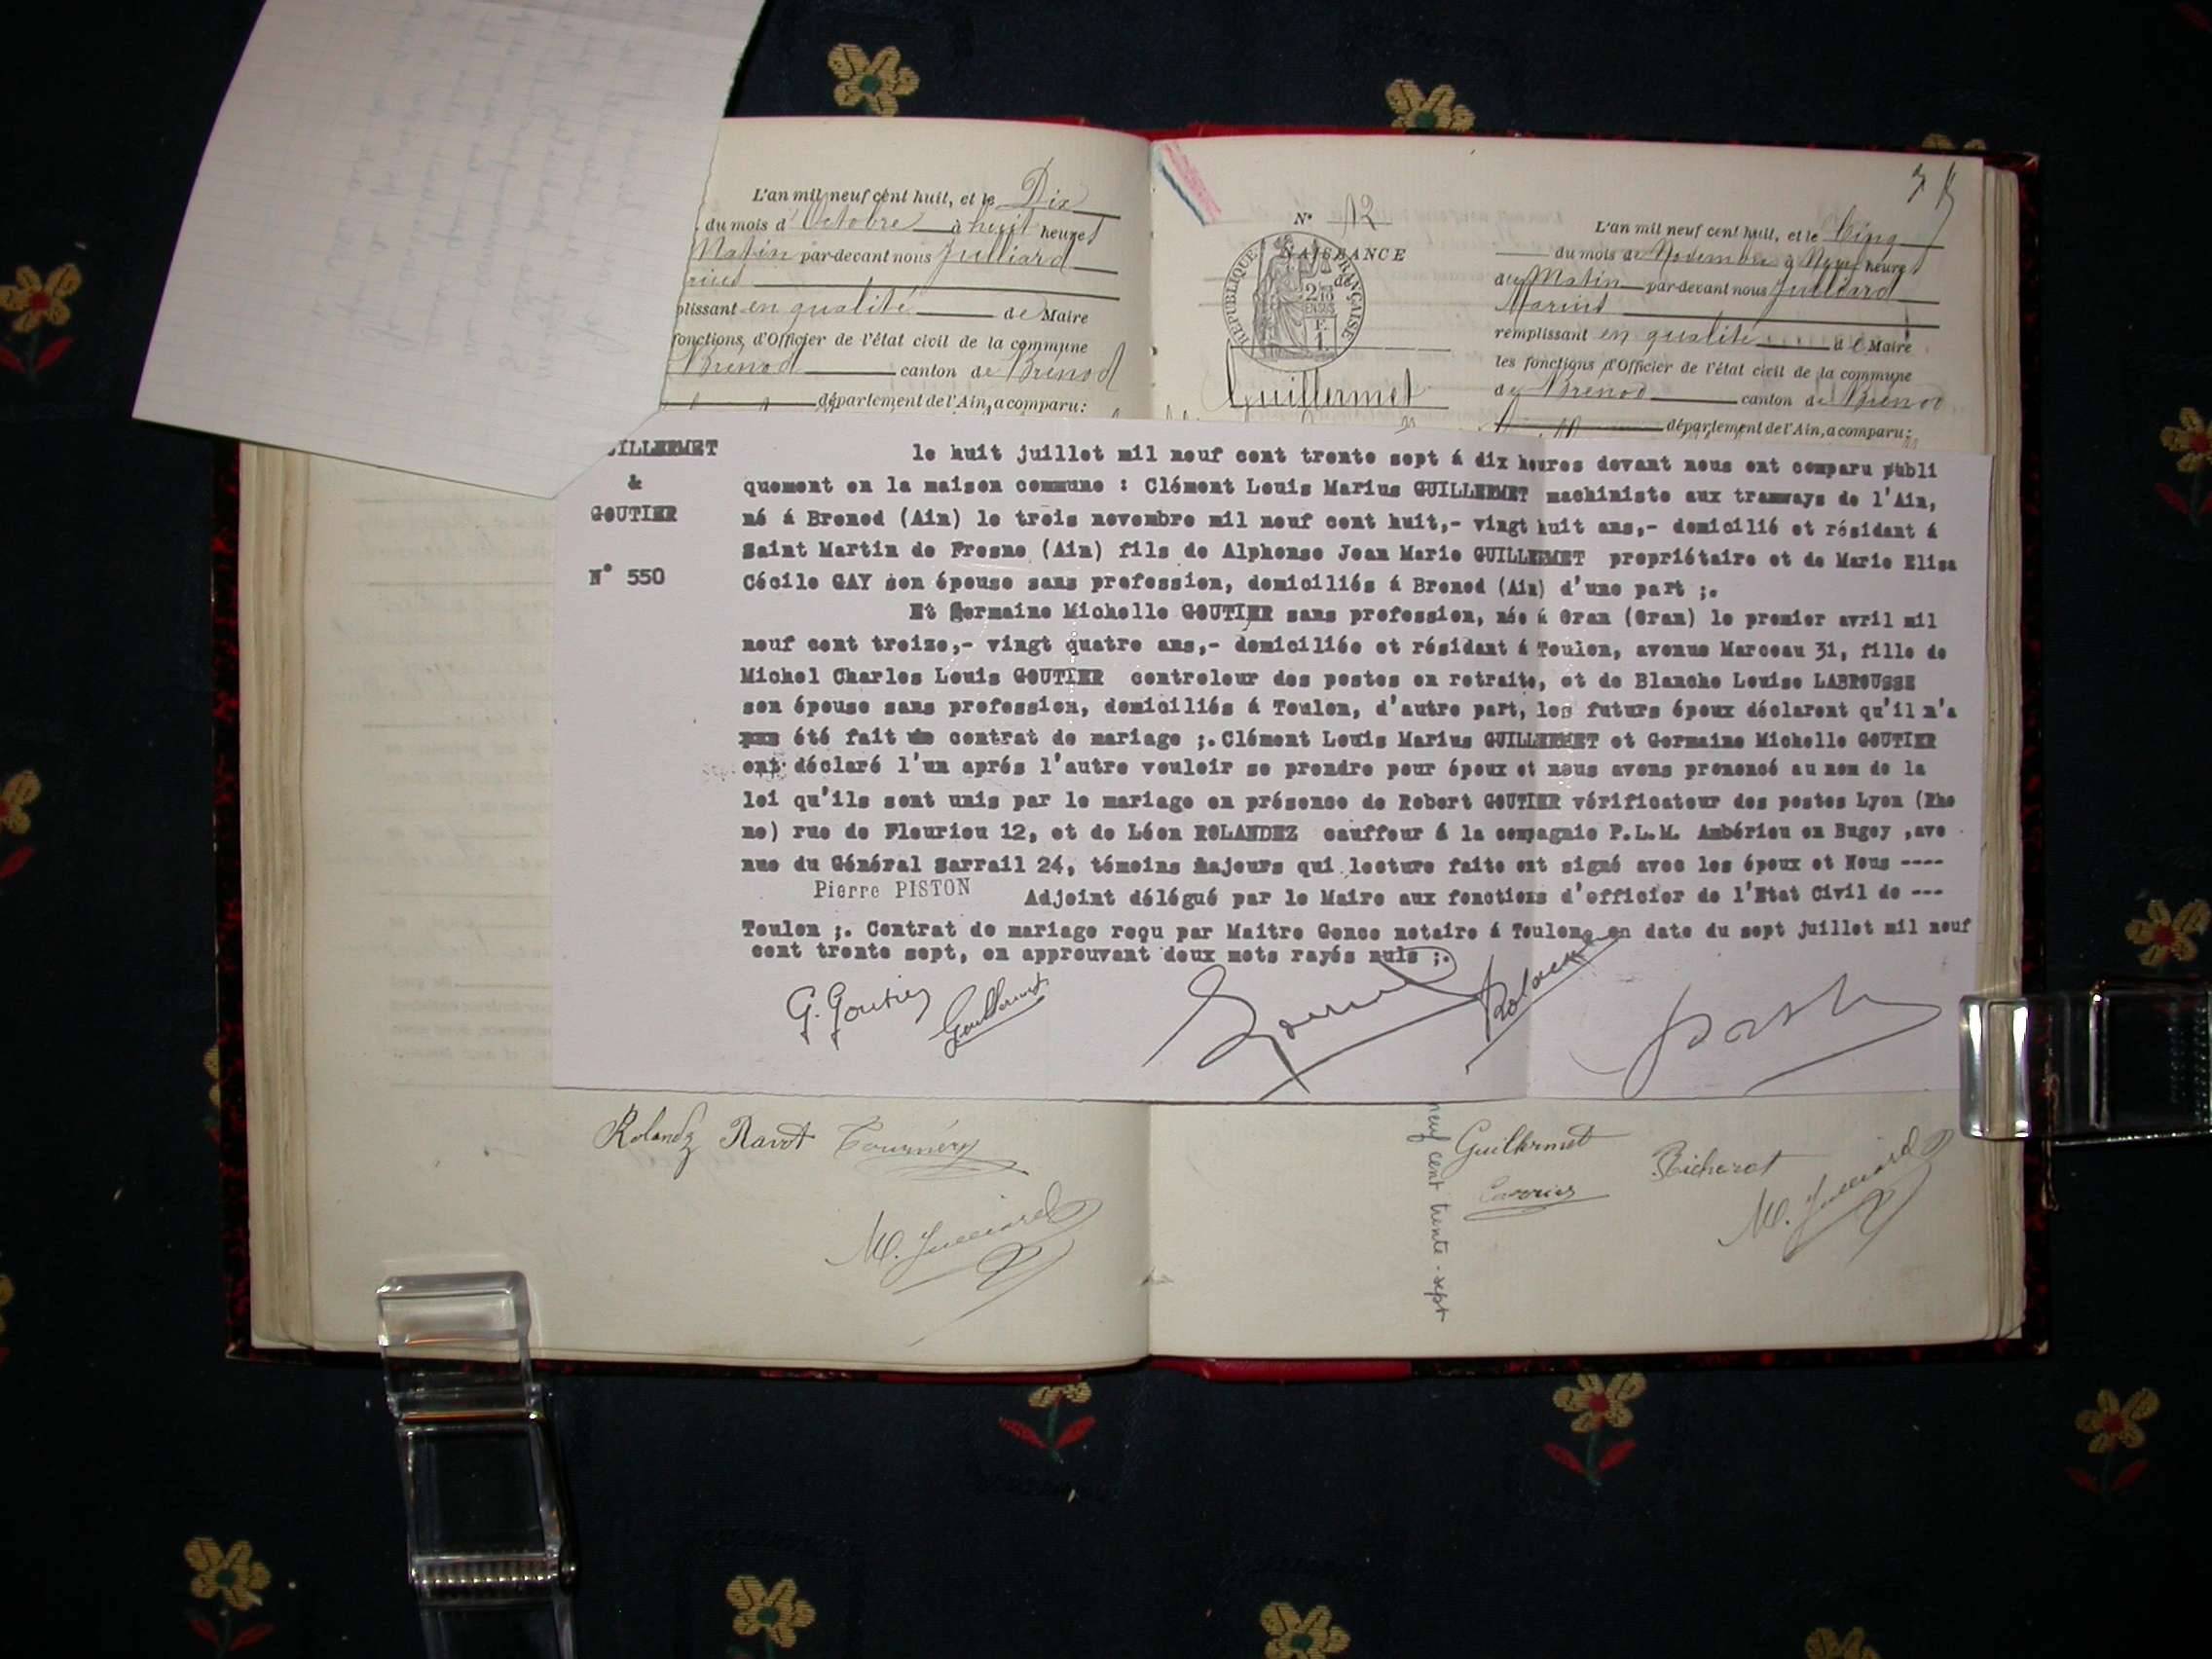 L'an mil neuf cent huit, et le Dix
du mois d'Octobre à huit heures
Matin par-devant nous Julliard
plissant en qualité de Maire
fonctions, d'Officier de l'état civil de la commune
Brenod canton de Brenod
département de l'Ain, a comparu:
35
N° 12
NAISSANCE
de
REPUBLIQUE FRANÇAISE
Guillermet
L'an mil neuf cent huit, et le Cinq
du mois de Novembre à Neuf heures
du Matin par-devant nous Julliard
Marius
remplissant en qualité de Maire
les fonctions d'Officier de l'état civil de la commune
de Brenod canton de Brenod
département de l'Ain, a comparu:
UILLERMET
&
GOUTIER
N° 550
le huit juillet mil neuf cent trente sept á dix heures devant nous ont comparu publi
quement en la maison commune : Clément Louis Marius GUILLERMET machiniste aux tramways de l'Ain,
né á Brenod (Ain) le trois novembre mil neuf cent huit,- vingt huit ans,- domicilié et résidant á
Saint Martin de Fresne (Ain) fils de Alphonse Jean Marie GUILLERMET propriétaire et de Marie Elisa
Cécile GAY son épouse sans profession, domiciliés á Brenod (Ain) d'une part ;.
Et Germaine Michelle GOUTIER sans profession, née á Oran (Oran) le premier avril mil
neuf cent treize,- vingt quatre ans,- domiciliée et résidant á Toulon, avenue Marceau 31, fille de
Michel Charles Louis GOUTIER controleur des postes en retraite, et de Blanche Louise LABROUSSE
son épouse sans profession, domiciliés á Toulon, d'autre part, les futurs époux déclarent qu'il n'a
pas été fait de contrat de mariage ;. Clément Louis Marius GUILLERMET et Germaine Michelle GOUTIER
ont déclaré l'un aprés l'autre vouloir se prendre pour époux et nous avons prononcé au nom de la
loi qu'ils sont unis par le mariage en présence de Robert GOUTIER vérificateur des postes Lyon (Rho
ne) rue de Fleurieu 12, et de Léon ROLANDEZ cauffeur á la compagnie P.L.M. Ambérieu en Bugey ,ave
nue du Général Sarrail 24, témoins majeurs qui lecture faite ont signé avec les époux et Nous ----
Pierre PISTON Adjoint délégué par le Maire aux fonctions d'officier de l'Etat Civil de ---
Toulon ;. Contrat de mariage reçu par Maitre Gence notaire á Toulon, en date du sept juillet mil neuf
cent trente sept, en approuvant deux mots rayés nuls ;.
G. Goutier Guillermet
Rolandez Ravot Tournéry
M. Julliard
neuf cent trente-sept
Guillermet
Richerot
M. Julliard